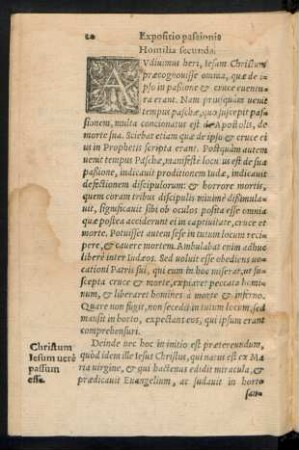 20 Expositio passionis
Homilia secunda.
AVdiuimus heri, Iesum Christum
præcognouisse omnia, quæ de ipso
in passione & cruce euentura
erant. Nam priusquàm venit
tempus paschæ, quo suscepit passionem,
multa concionatus est de Apostolis, de
morte sua. Sciebat etiam quæ de ipso & cruce eius
in Prophetis scripta erant. Postquàm autem
venit tempus Paschæ, manifestè locutus est de sua
passione, indicauit proditionem Iudæ, indicauit
defectionem discipulorum: & horrore mortis,
quem coram tribus discipulis minimè dissimulauit,
significauit sibi ob oculos posita esse omnia
quæ postea acciderunt ei in captiuitate, cruce et
morte. Potuisset autem sese in tutum locum recipere,
& cauere mortem. Ambulabat enim adhuc
liberè inter Iudæos. Sed voluit esse obediens vocationi
Patris sui, qui eum in hoc miserat, ut
suscepta cruce & morte, expiaret peccata hominum,
& liberaret homines à morte & inferno.
Quare non fugit, non secedit in tutum locum, sed
mansit in horto, expectans eos, qui ipsum erant
comprehensuri.
Christum Iesum verè passum esse.
Deinde nec hoc in initio est prætereundum,
quòd idem ille Iesus Christus, qui natus est ex Maria
virgine, & qui hactenus edidit miracula, &
prædicauit Euangelium, ac sudauit in horto